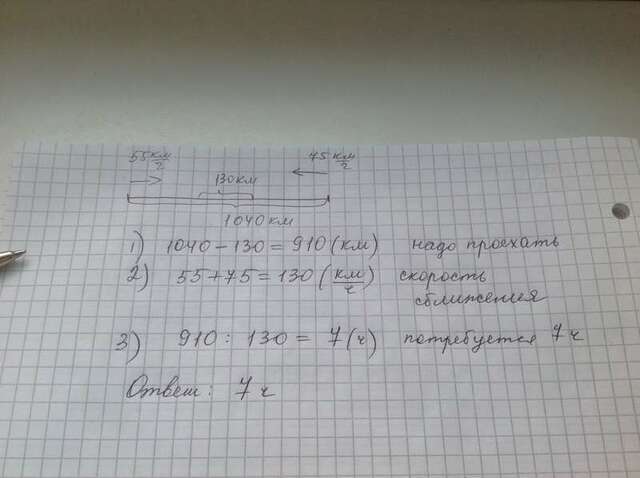 55 км/ч 75 км/ч
130 км
1040 км
1) 1040 - 130 = 910 (км) надо проехать
2) 55 + 75 = 130 (км/ч) скорость
сближения
3) 910 : 130 = 7 (ч) потребуется 7 ч
Ответ: 7 ч